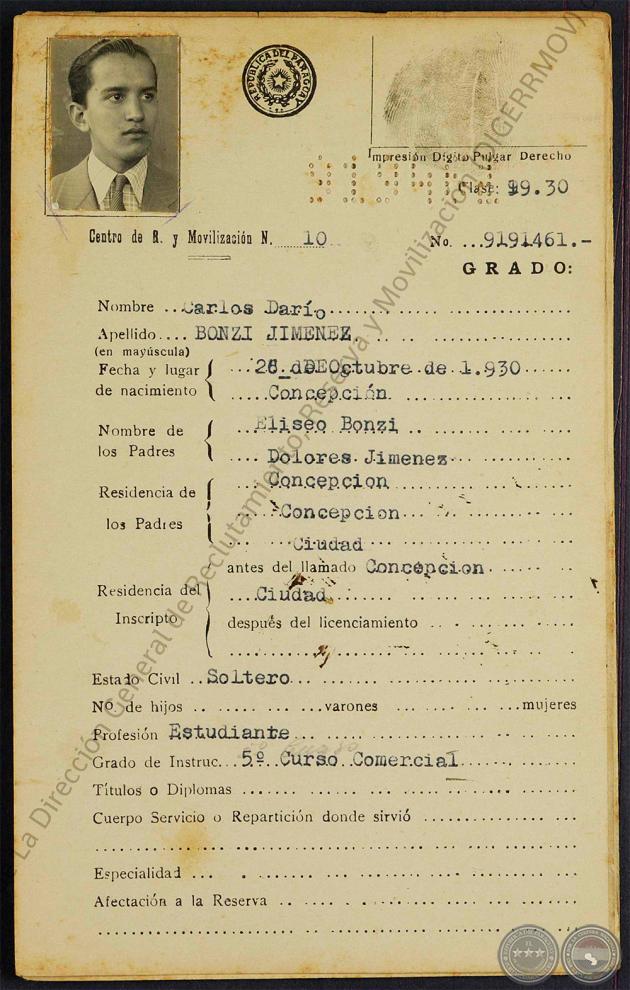 REPUBLICA DEL PARAGUAY
Impresión Dígito Pulgar Derecho
Clase: 19.30
Centro de R. y Movilización N. 10 No. ...9191461.-
GRADO:
Nombre ..Carlos Darío
Apellido.... BONZI JIMENEZ.
(en mayúscula)
Fecha y lugar de nacimiento
26 DE Octubre de 1.930
Concepción
Nombre de los Padres
Eliseo Bonzi
Dolores Jimenez
Residencia de los Padres
Concepcion
Concepcion
Ciudad
Residencia del Inscripto
antes del llamado Concepcion
Ciudad
después del licenciamiento
Estado Civil ..Soltero
Nº. de hijos .. varones .. mujeres
Profesión Estudiante
Grado de Instruc...5º Curso Comercial
Títulos o Diplomas
Cuerpo Servicio o Repartición donde sirvió
Especialidad
Afectación a la Reserva
La Dirección General de Reclutamiento, Reserva y Movilización (DIGERRMOV)